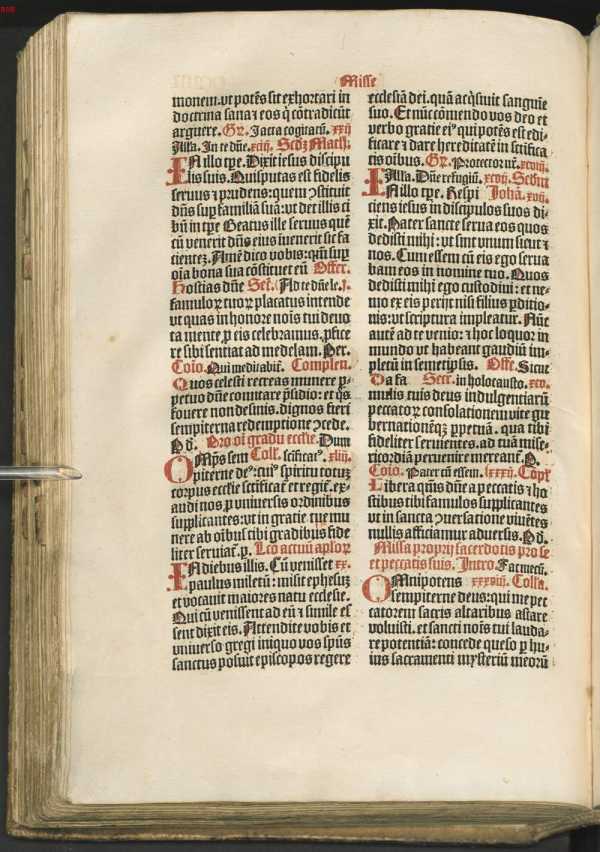 Misse
monem. vt potēs sit exhortari in
doctrina sana: et eos q̄ cōtradicūt
arguere. Gr. Iacta cogitatū. xxij
Alla. In te dn̄e. xciij. Scdȝ Math.
IN illo tpe. Dixit iesus discipu
lis suis. Quis putas est fidelis
seruus et prudens: quem ꝯstituit
dn̄s sup familiā suā: vt det illis ci
bū in tpe Beatus ille seruus quē
cū venerit dn̄s eius inuenerit sic fa
cientez. Amē dico vobis: qm̄ sup
oīa bona sua cōstituet eū Offer.
Hostias dn̄e Secr. Ad te dn̄e le. j.
famuloꝝ tuoꝝ placatus intende
vt quas in honore noīs tui deuo
ta mente p eis celebramus. pficē
re sibi sentiat ad medelam. Per.
Cōio. Qui meditabit̄. Complen.
Quos celesti recreas munere p̱
petuo dn̄e comitare p̄sidio: et q̄s
fouere non desinis. dignos fieri
sempiterna redemptione ꝯcede.
P. d. Pro oī gradu eccl̄ie. Dum
OMps sem Coll. sc̄ificat'. xliij.
piterne de': cui' spiritu totuȝ
corpus eccl̄ie sctificat̄ et regit̄. ex-
audi nos p vniuersis ordinibus
supplicantes: vt in gratie tue mu
nere ab oībus tibi gradibus fide
liter seruiat̄. p. Lc̄o actuū apl̄oꝝ
IN diebus illis. Cū venisset xx.
paulus miletū: misit ephesuȝ
et vocauit maiores natu ecclesie.
Qui cū venissent ad eū et simul es
sent dixit eis. Attendite vobis et
vniuerso gregi in quo vos sp̄us
sanctus posuit episcopos regere
ecclesiā dei. quā acq̄siuit sanguīe
suo. Et nūc cōmendo vos deo et
verbo gratie ei' qui potēs est edi-
ficare et dare hereditatē in sctifica
tis oībus. Gr. Protector nr̄. xcviij.
Alla. Dn̄e refugiū. xcvij. Scdm
IN illo tpe. Respi Johā. xvij.
ciens iesus in discipulos suos di-
xit. Pater sancte serua eos quos
dedisti mihi: vt sint vnum sicut et
nos. Cum essem cū eis ego serua
bam eos in nomine tuo. Quos
dedisti mihi ego custodiui: et ne-
mo ex eis perijt nisi filius pditio-
nis: vt scriptura impleatur. Nūc
autē ad te venio: et hoc loquor in
mundo vt habeant gaudiū im-
pletū in semetipsis. Offe. Sicut
Da fa Secr. in holocausto. xcv.
mulis tuis deus indulgentiarū
peccatoꝝ consolationem vite gu
bernationēq̄ ppetuā. qua tibi
fideliter seruientes. ad tuā mise-
ricordiā peruenire mereant̄. P.
Cōio. Pater cū essem. lxxxij. Copl̄
Libera q̄ms dn̄e a peccatis et ho
stibus tibi famulos supplicantes
vt in sancta ꝯuersatione viuētes
nullis afficiamur aduersis. P. d.
Missa proprij sacerdotis pro se
et peccatis suis. Intro. Fac mecū.
OMnipotens xxxviij. Colla.
sempiterne deus: qui me pec
catorem sacris altaribus astare
voluisti. et sancti noīs tui lauda-
re potentiā: concede queso p hu-
ius sacramenti mysteriū meorū